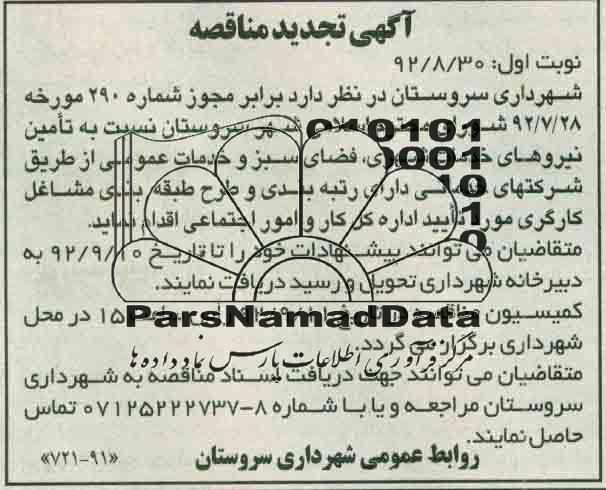 آگهی تجدید مناقصه
نوبت اول: ۹۲/۸/۳۰
شهرداری سروستان در نظر دارد برابر مجوز شماره ۲۹۰ مورخه
۹۲/۷/۲۸ شورای محترم اسلامی شهر سروستان نسبت به تأمین
نیروهای خدمات شهری، فضای سبز و خدمات عمومی از طریق
شرکتهای خدماتی دارای رتبه بندی و طرح طبقه بندی مشاغل
کارگری مورد تأیید اداره کل کار و امور اجتماعی اقدام نماید.
متقاضیان می توانند پیشنهادات خود را تا تاریخ ۹۲/۹/۱۰ به
دبیرخانه شهرداری تحویل و رسید دریافت نمایند.
کمیسیون مناقصه در محل
ParsNamadData
شهرداری برگزار می گردد.
مرکز فرآوری اطلاعات پارس نماد داده ها
متقاضیان می توانند جهت دریافت اسناد مناقصه به شهرداری
سروستان مراجعه و یا با شماره ۸-۰۷۱۲۵۲۲۲۷۳۷ تماس
حاصل نمایند.
روابط عمومی شهرداری سروستان «۹۱-۷۲۱»